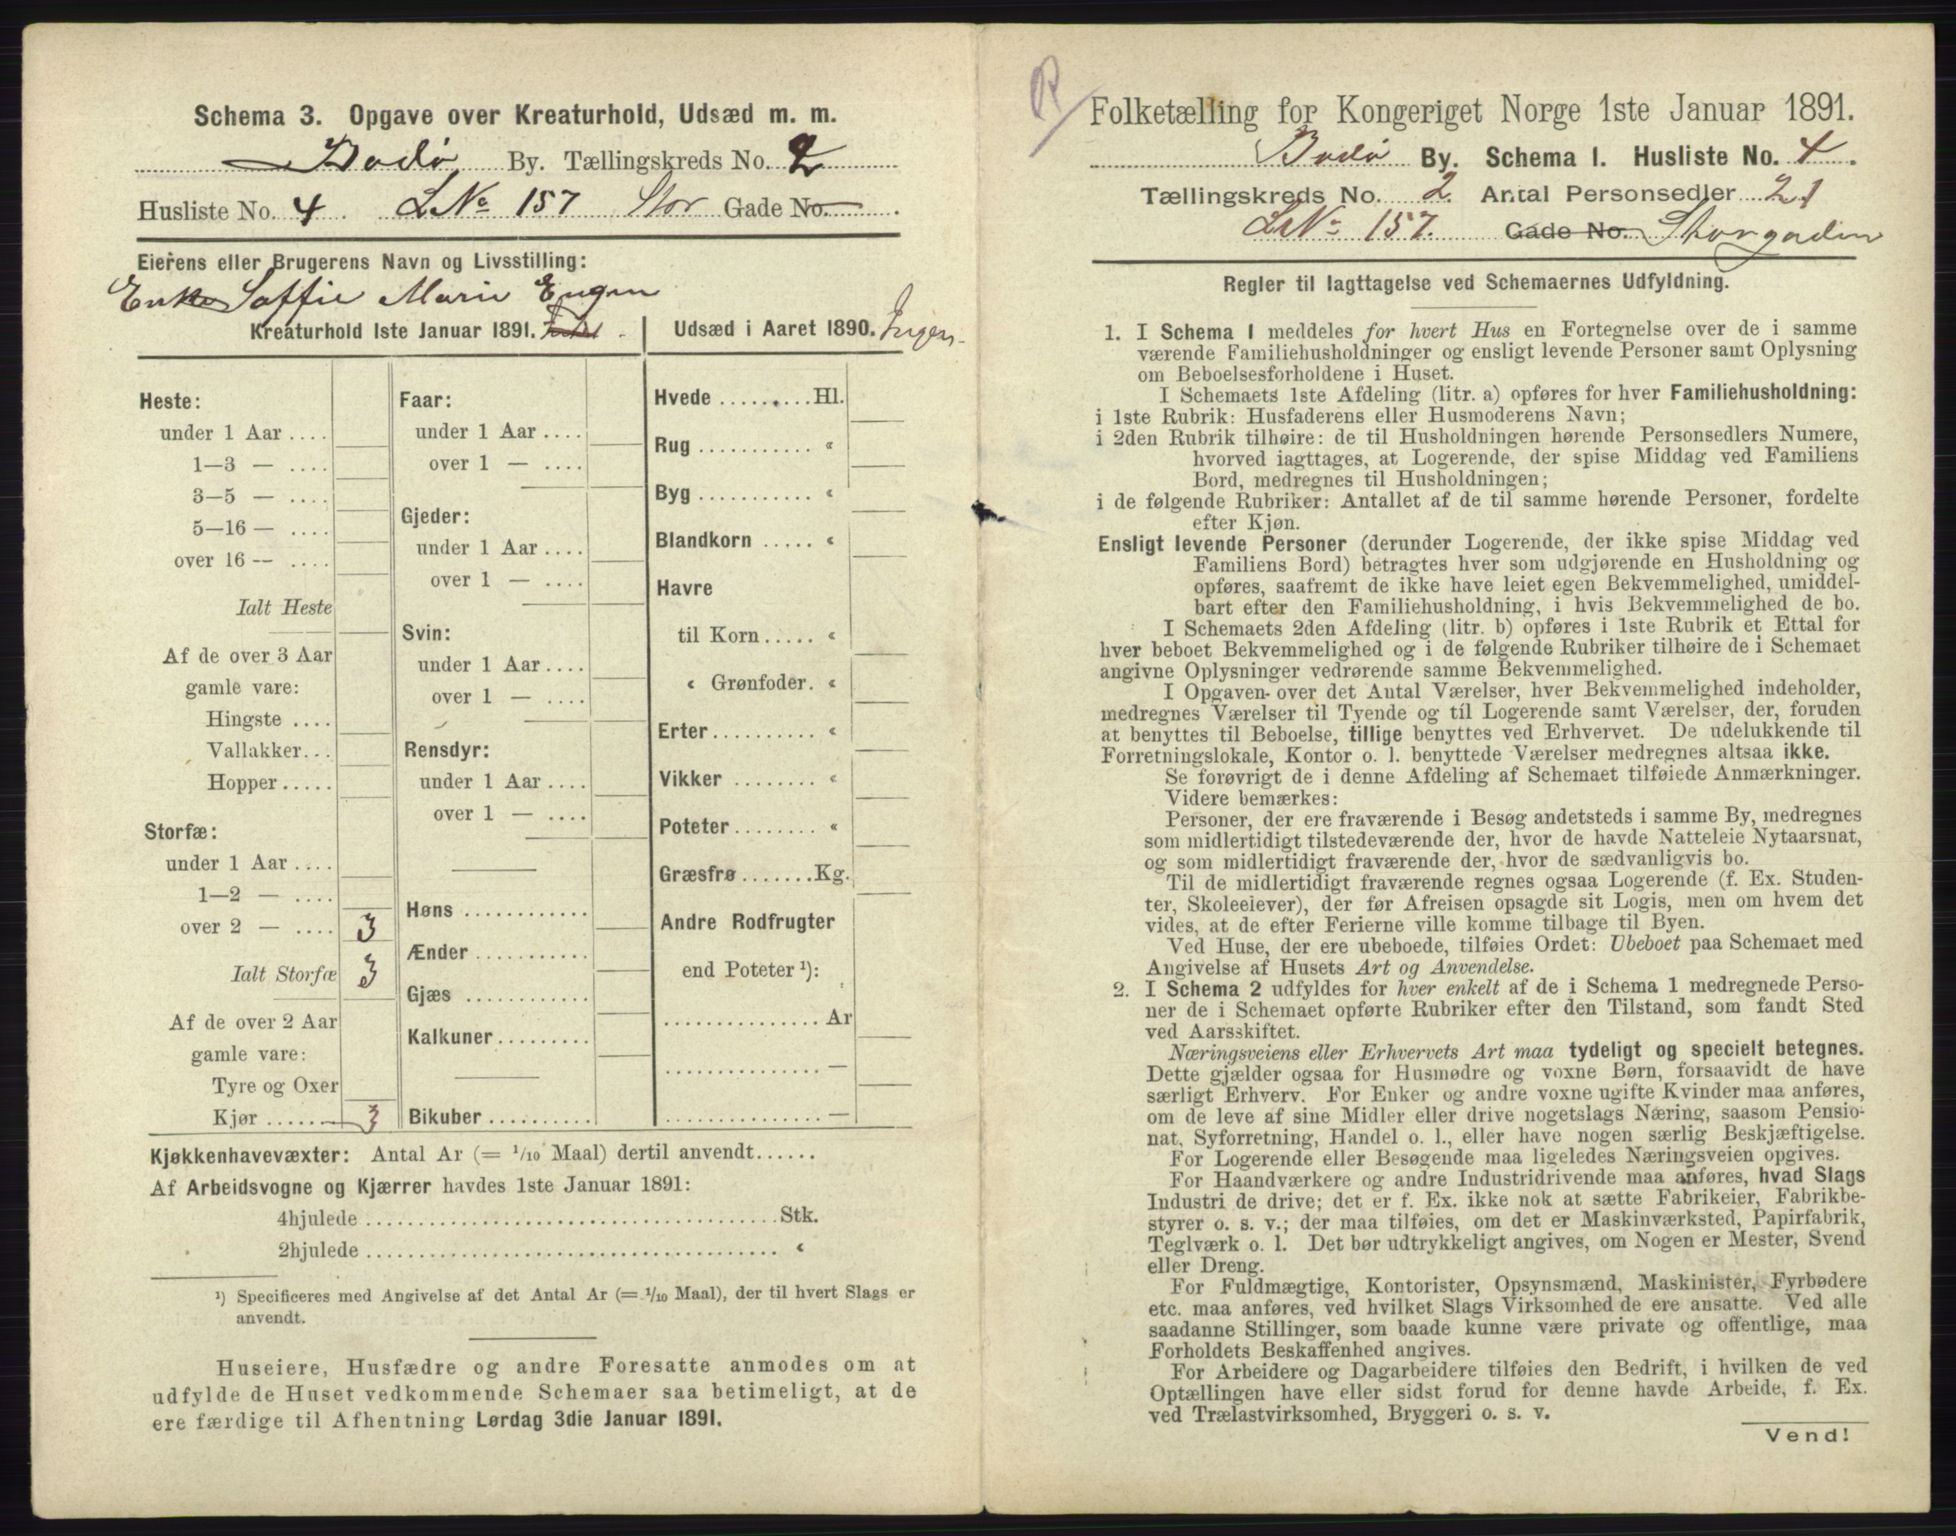 Schema 3. Opgave over Kreaturhold, Udsæd m. m.
Bodø By. Tællingskreds No. 2
Husliste No. 4 LNo 157 Stor Gade No.
Eierens eller Brugerens Navn og Livsstilling:
Enke Soffie Marie Engen
Kreaturhold 1ste Januar 1891.
Udsæd i Aaret 1890. Ingen
Heste:
under 1 Aar ....
1—3 — ....
3—5 — ....
5—16 — ....
over 16 — ....
Ialt Heste
Af de over 3 Aar
gamle vare:
Hingste ....
Vallakker...
Hopper.....
Storfæ:
under 1 Aar ....
1—2 — ....
over 2 — .... 3
Ialt Storfæ 3
Af de over 2 Aar
gamle vare:
Tyre og Oxer
Kjør ........ 3
Faar:
under 1 Aar ....
over 1 — ....
Gjeder:
under 1 Aar ....
over 1 — ....
Svin:
under 1 Aar ....
over 1 — ....
Rensdyr:
under 1 Aar ....
over 1 — ....
Høns ............
Ænder ...........
Gjæs ............
Kalkuner.........
Bikuber ..........
Hvede .........Hl.
Rug ........... «
Byg ........... «
Blandkorn ..... «
Havre
til Korn ..... «
« Grønfoder. «
Erter.......... «
Vikker ........ «
Poteter........ «
Græsfrø .......Kg.
Andre Rodfrugter
end Poteter ¹):
............... Ar
............... —
............... —
Kjøkkenhavevæxter: Antal Ar (= 1/10 Maal) dertil anvendt......
Af Arbeidsvogne og Kjærrer havdes 1ste Januar 1891:
4hjulede ........................................Stk.
2hjulede ........................................ «
¹) Specificeres med Angivelse af det Antal Ar (= 1/10 Maal), der til hvert Slags er
anvendt.
Huseiere, Husfædre og andre Foresatte anmodes om at
udfylde de Huset vedkommende Schemaer saa betimeligt, at de
ere færdige til Afhentning Lørdag 3die Januar 1891.
Folketælling for Kongeriget Norge 1ste Januar 1891.
Bodø By. Schema 1. Husliste No. 4.
Tællingskreds No. 2. Antal Personsedler 21
LNo 157. Gade No. Storgaden
Regler til Iagttagelse ved Schemaernes Udfyldning.
1. I Schema 1 meddeles for hvert Hus en Fortegnelse over de i samme
værende Familiehusholdninger og ensligt levende Personer samt Oplysning
om Beboelsesforholdene i Huset.
I Schemaets 1ste Afdeling (litr. a) opføres for hver Familiehusholdning:
i 1ste Rubrik: Husfaderens eller Husmoderens Navn;
i 2den Rubrik tilhøire: de til Husholdningen hørende Personsedlers Numere,
hvorved iagttages, at Logerende, der spise Middag ved Familiens
Bord, medregnes til Husholdningen;
i de følgende Rubriker: Antallet af de til samme hørende Personer, fordelte
efter Kjøn.
Ensligt levende Personer (derunder Logerende, der ikke spise Middag ved
Familiens Bord) betragtes hver som udgjørende en Husholdning og
opføres, saafremt de ikke have leiet egen Bekvemmelighed, umiddel-
bart efter den Familiehusholdning, i hvis Bekvemmelighed de bo.
I Schemaets 2den Afdeling (litr. b) opføres i 1ste Rubrik et Ettal for
hver beboet Bekvemmelighed og i de følgende Rubriker tilhøire de i Schemaet
angivne Oplysninger vedrørende samme Bekvemmelighed.
I Opgaven over det Antal Værelser, hver Bekvemmelighed indeholder,
medregnes Værelser til Tyende og til Logerende samt Værelser, der, foruden
at benyttes til Beboelse, tillige benyttes ved Erhvervet. De udelukkende til
Forretningslokale, Kontor o. l. benyttede Værelser medregnes altsaa ikke.
Se forøvrigt de i denne Afdeling af Schemaet tilføiede Anmærkninger.
Videre bemærkes:
Personer, der ere fraværende i Besøg andetsteds i samme By, medregnes
som midlertidigt tilstedeværende der, hvor de havde Natteleie Nytaarsnat,
og som midlertidigt fraværende der, hvor de sædvanligvis bo.
Til de midlertidigt fraværende regnes ogsaa Logerende (f. Ex. Studen-
ter, Skoleeiever), der før Afreisen opsagde sit Logis, men om hvem det
vides, at de efter Ferierne ville komme tilbage til Byen.
Ved Huse, der ere ubeboede, tilføies Ordet: Ubeboet paa Schemaet med
Angivelse af Husets Art og Anvendelse.
2. I Schema 2 udfyldes for hver enkelt af de i Schema 1 medregnede Perso-
ner de i Schemaet opførte Rubriker efter den Tilstand, som fandt Sted
ved Aarsskiftet.
Næringsveiens eller Erhvervets Art maa tydeligt og specielt betegnes.
Dette gjælder ogsaa for Husmødre og voxne Børn, forsaavidt de have
særligt Erhverv. For Enker og andre voxne ugifte Kvinder maa anføres,
om de leve af sine Midler eller drive nogetslags Næring, saasom Pensio-
nat, Syforretning, Handel o. l., eller have nogen særlig Beskjæftigelse.
For Logerende eller Besøgende maa ligeledes Næringsveien opgives.
For Haandværkere og andre Industridrivende maa anføres, hvad Slags
Industri de drive; det er f. Ex. ikke nok at sætte Fabrikeier, Fabrikbe-
styrer o. s. v.; der maa tilføies, om det er Maskinværksted, Papirfabrik,
Teglværk o. l. Det bør udtrykkeligt angives, om Nogen er Mester, Svend
eller Dreng.
For Fuldmægtige, Kontorister, Opsynsmænd, Maskinister, Fyrbødere
etc. maa anføres, ved hvilket Slags Virksomhed de ere ansatte. Ved alle
saadanne Stillinger, som baade kunne være private og offentlige, maa
Forholdets Beskaffenhed angives.
For Arbeidere og Dagarbeidere tilføies den Bedrift, i hvilken de ved
Optællingen have eller sidst forud for denne havde Arbeide, f. Ex.
ved Trælastvirksomhed, Bryggeri o. s. v.
Vend!